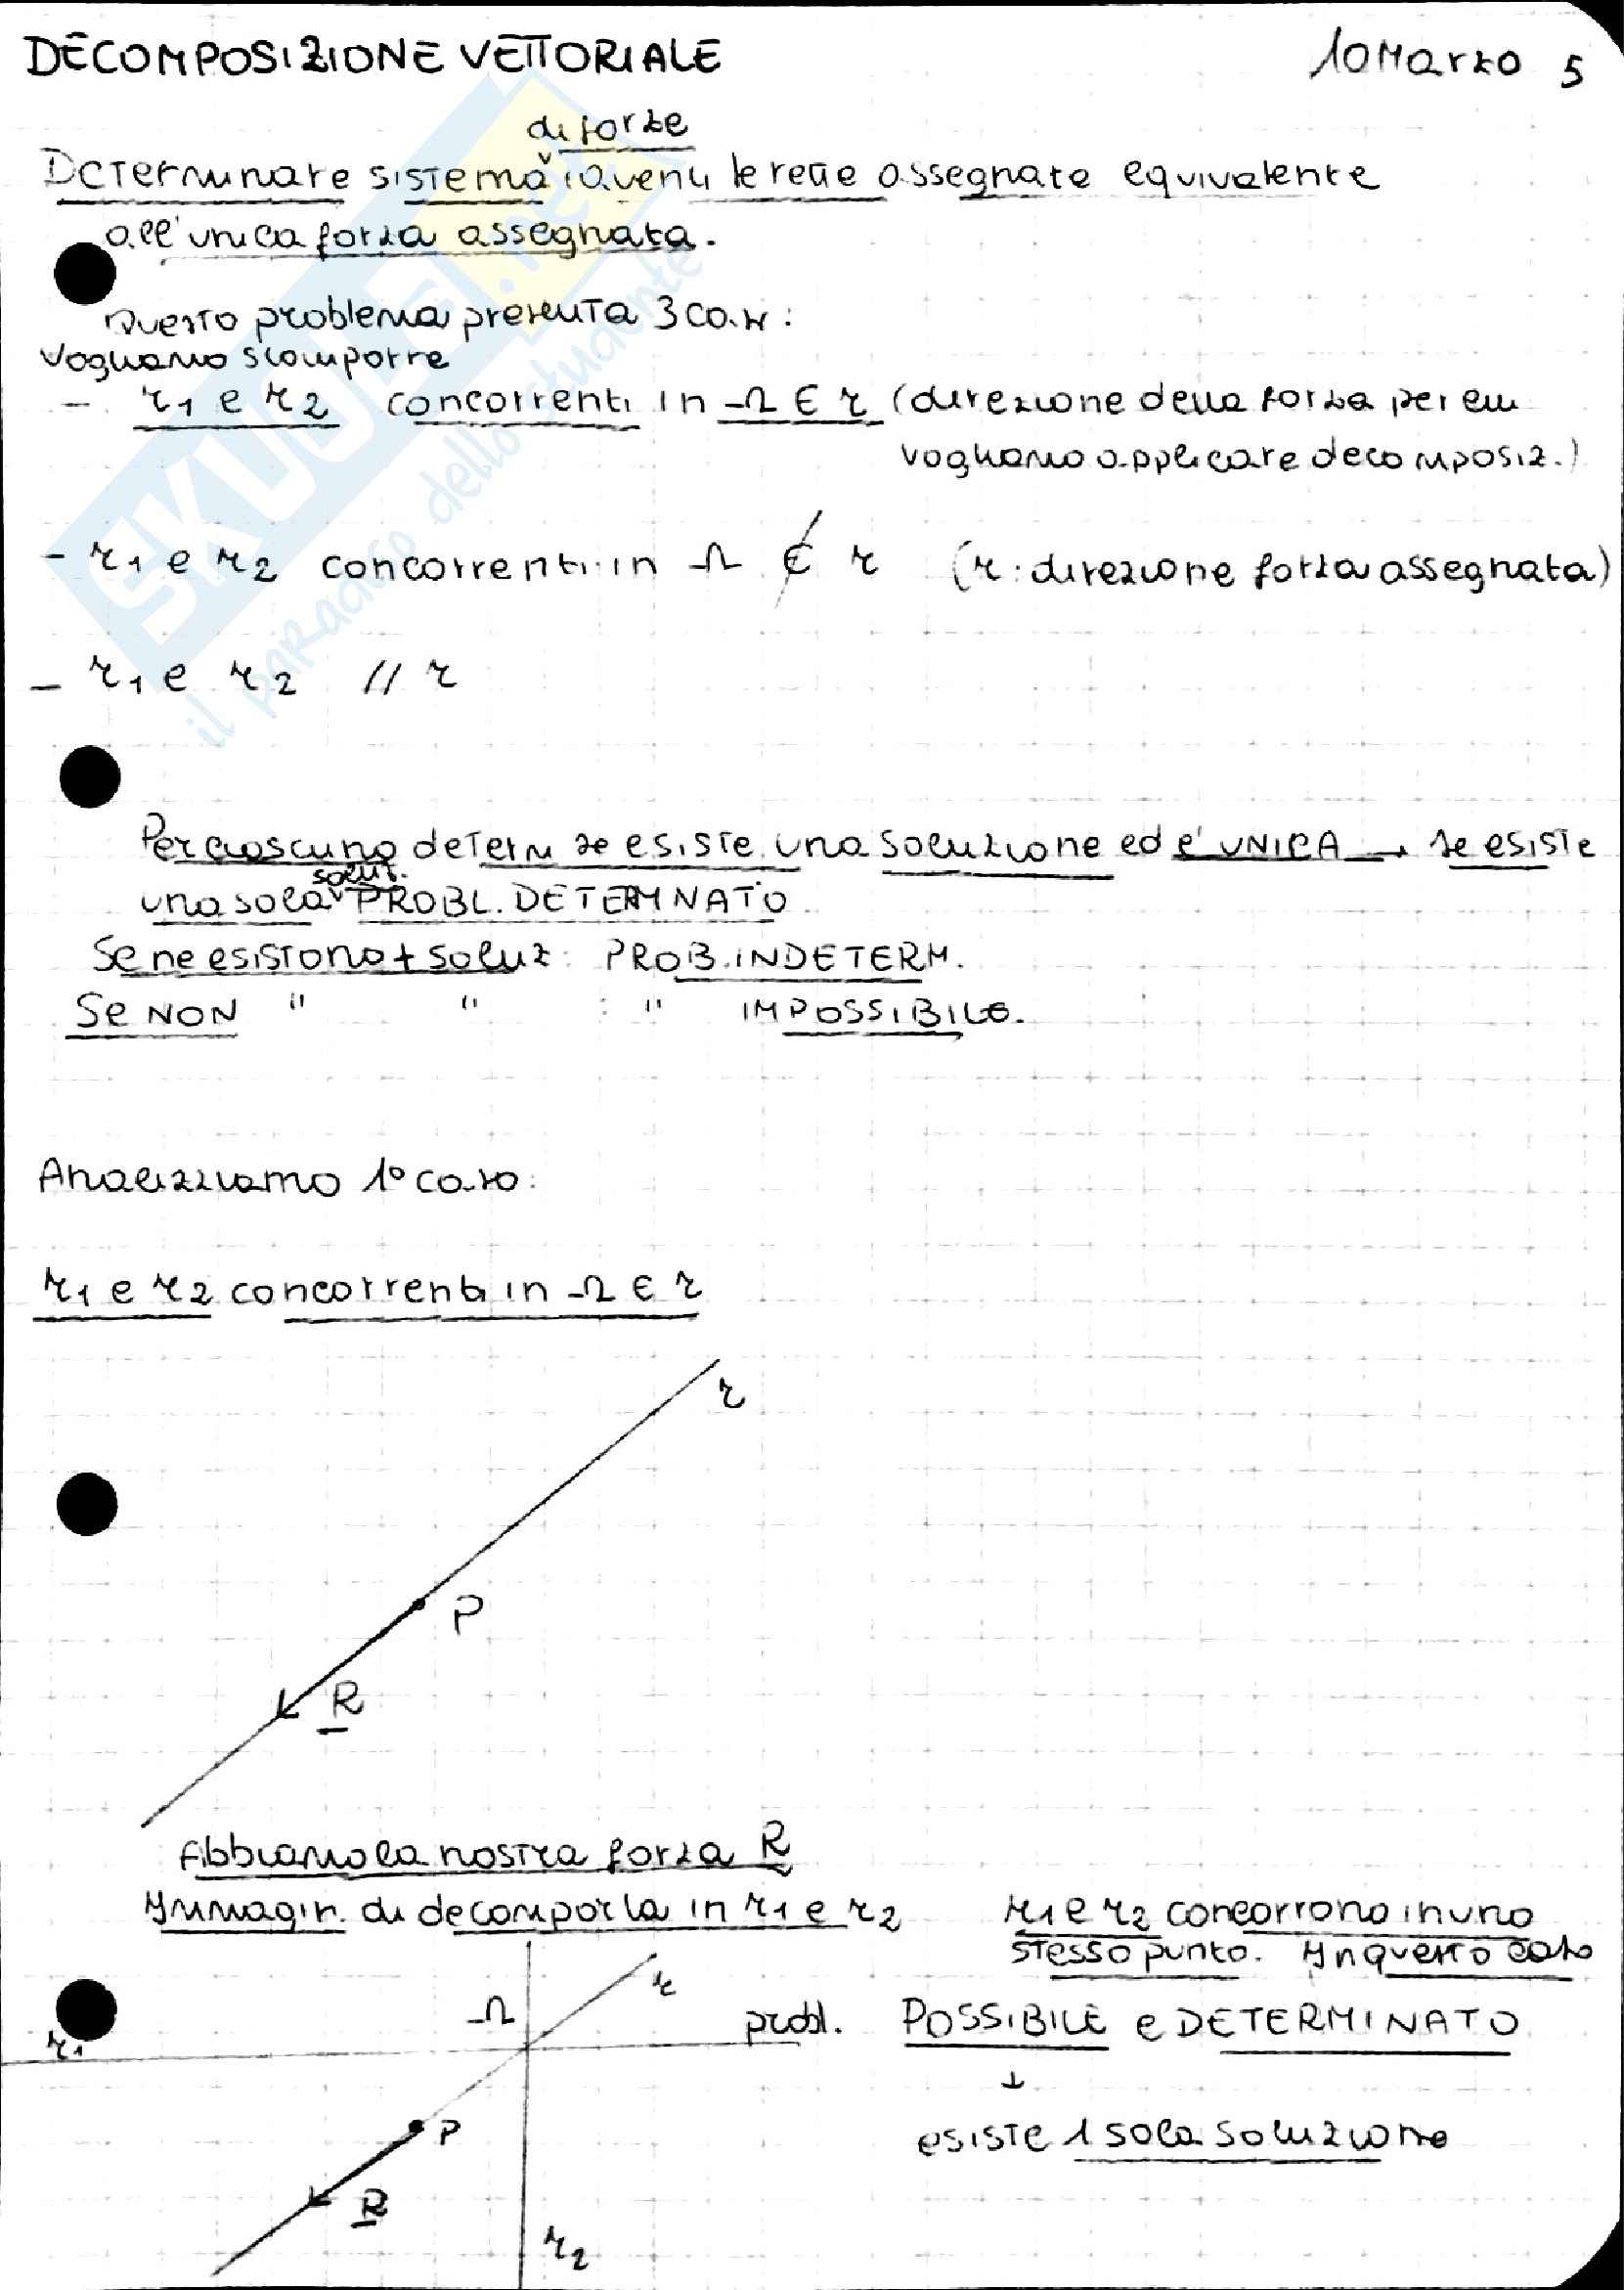 DECOMPOSIZIONE VETTORIALE
10 Marzo 5
di forze
Determinare sistema aventi le rette assegnate equivalente
all'unica forza assegnata.
Questo problema presenta 3 casi:
Vogliamo scomporre
- r1 e r2 concorrenti in Ω ∈ r (direzione della forza per cui
vogliamo applicare decomposiz.)
- r1 e r2 concorrenti in Ω ∉ r (r: direzione forza assegnata)
- r1 e r2 // r
Per ciascuno determ se esiste una soluzione ed é UNICA → se esiste
solut.
una sola PROBL. DETERMNATO
Se ne esistono + soluz: PROB. INDETERM.
Se NON " " : " IMPOSSIBILE.
Analizziamo 1° caso:
r1 e r2 concorrenti in Ω ∈ r
r
P
R
Abbiamo la nostra forza R
Immagin. di decomporla in r1 e r2
r1 e r2 concorrono in uno
stesso punto. In questo caso
Ω
r
probl. POSSIBILE e DETERMINATO
r1
↓
P
esiste 1 sola soluzione
R
r2
SKUOLA.net
il paradiso dello studente